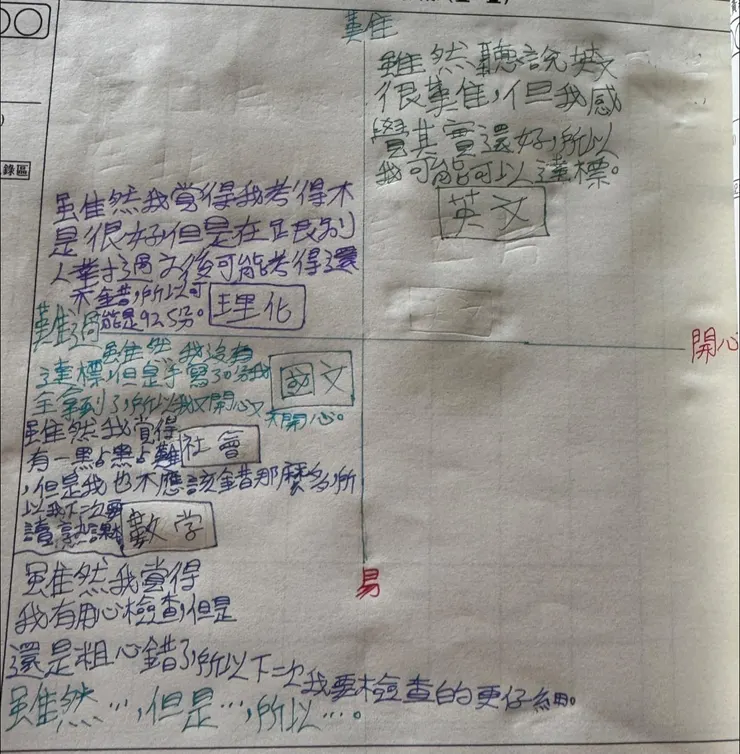 難
雖然聽說英文
很難,但我感
覺其實還好,所以
我可能可以達標。
英文
雖然我覺得我考得不
是很好但是在跟別
人對過之後可能考得還
不錯,所以可
能是92.5分。
理化
難過
開心
雖然我沒有
達標,但是手寫30分我
全拿到了,所以我又開心又不開心。
國文
雖然我覺得
有一點點難
社會
,但是我也不應該錯那麼多,所
以我下次要
讀熟課
數学
易
雖然我覺得
我有用心檢查,但是
還是粗心錯了,所以下次我要檢查的更仔細。
雖然…,但是…,所以…。
錄區